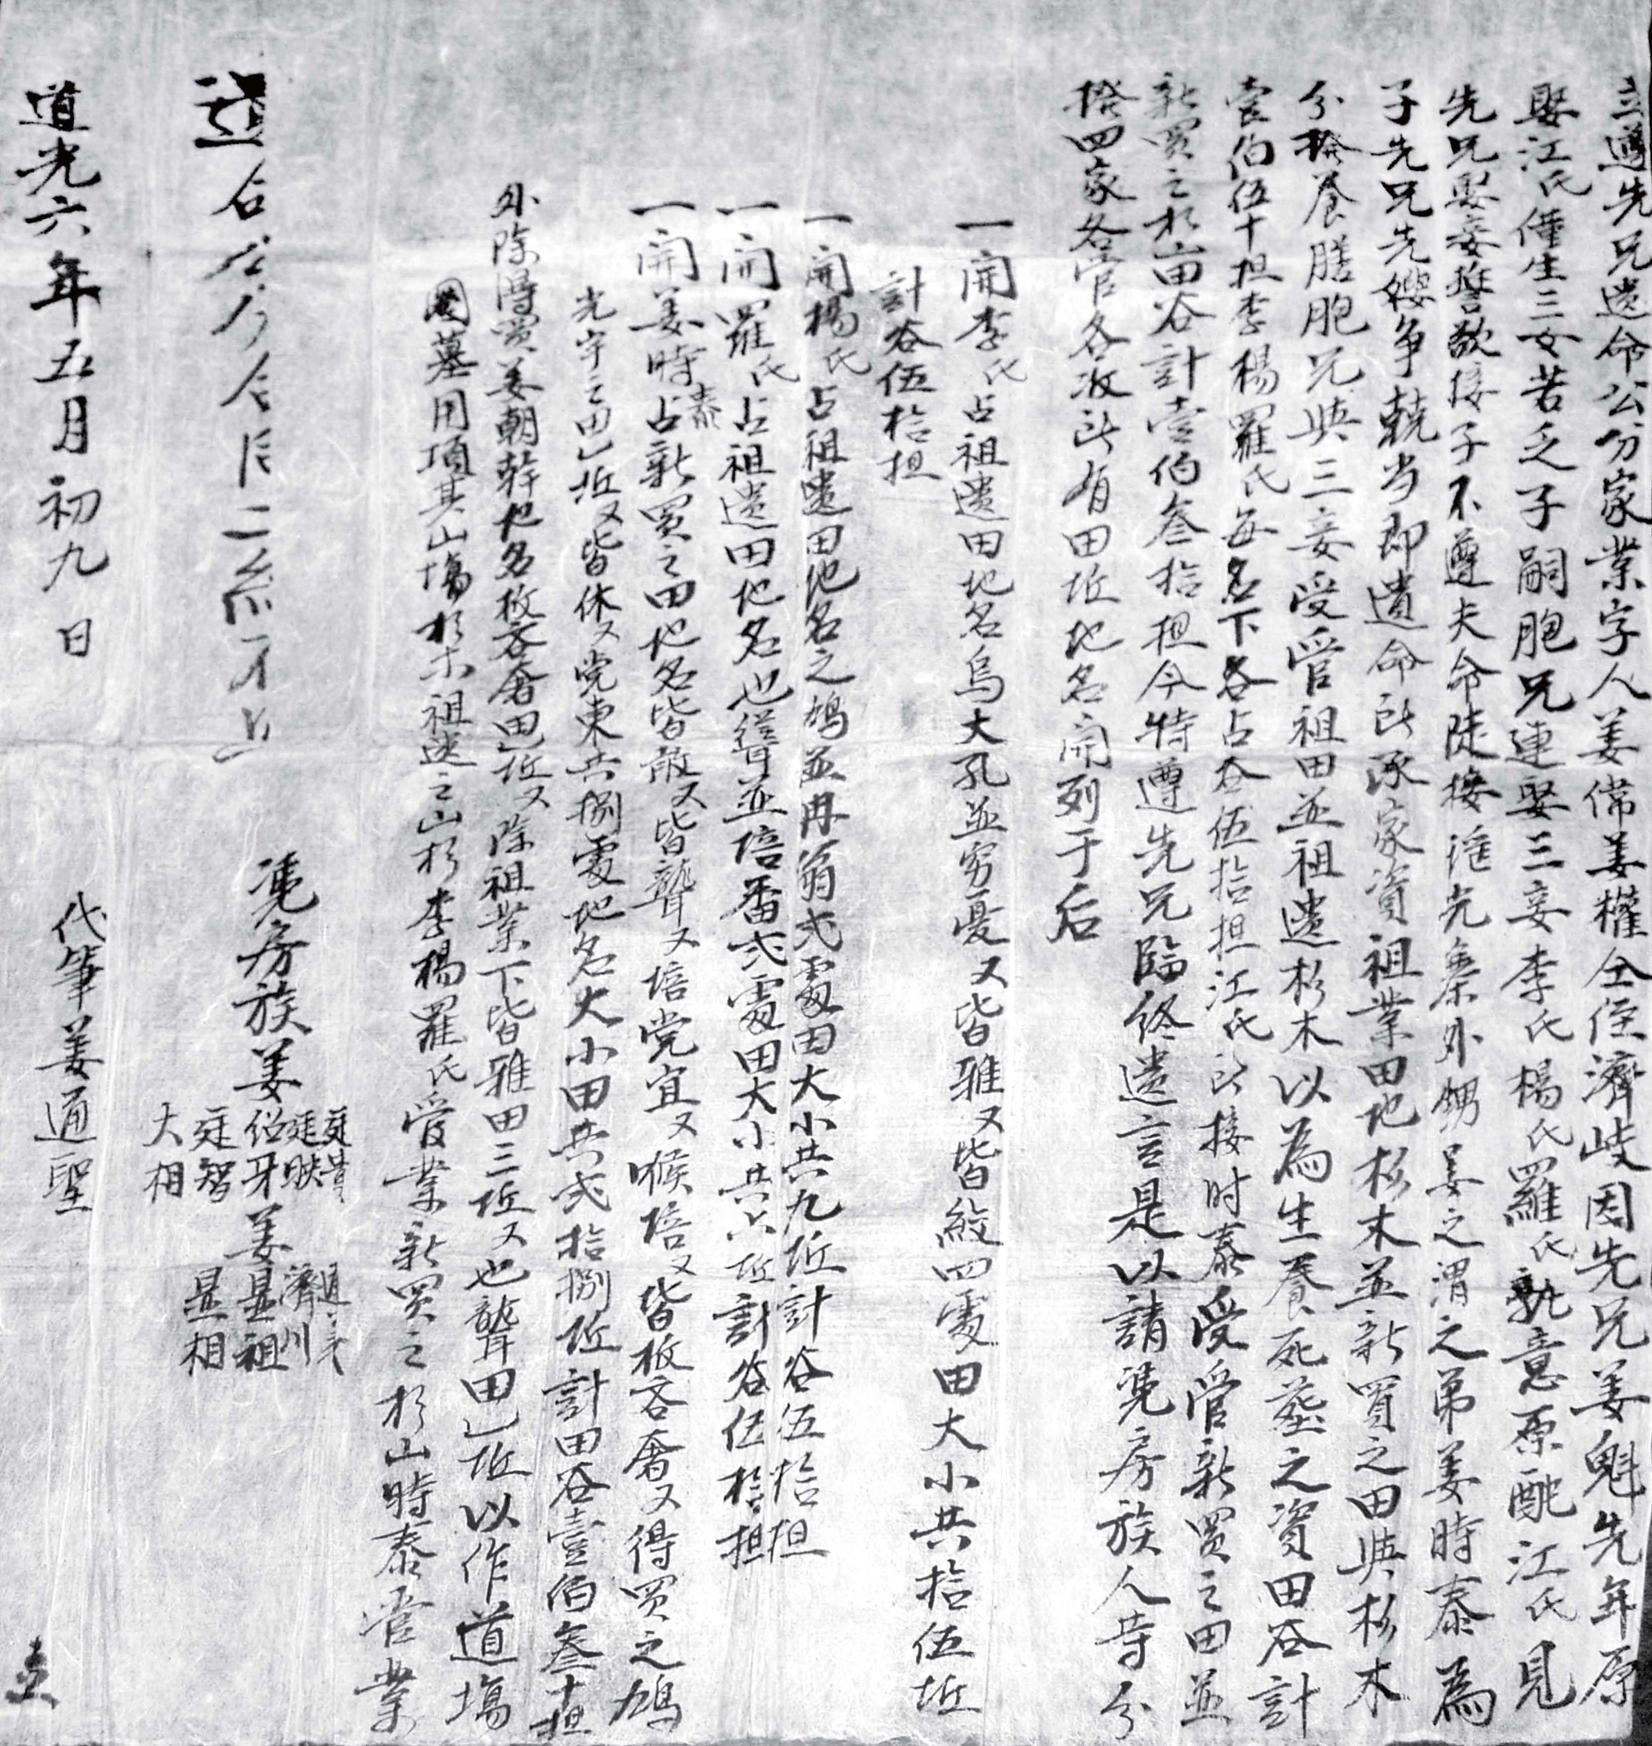 立遵先兄遗命公分家業字人姜偹姜權仝侄濟岐因先兄姜魁先年原
娶江氏僅生三女若乏子嗣胞兄連娶三妾李氏楊氏羅氏孰意原配江氏見
先兄娶妾誓欲接子不遵夫命陡接滛先秦外甥姜之渭之弟姜時泰為
子先兄先嫂争競当即遺命所承家資祖業田地杉木並新買之田與杉木
分撥養膳胞兄與三妾受管祖田並祖遺杉木以為生養死塟之資田谷計
壹伯伍十担李楊羅氏每名下各占谷伍拾担江氏所接时泰受管新買之田並
新買之杉山田谷計壹伯叁拾担今特遵先兄臨終遗言是以請凭房族人等分
撥四家各管各收所有田坵地名開列于后
一開李氏占祖遺田地名烏大孔並穷憂又皆雅又皆絞四䨏田大小共拾伍坵
計谷伍拾担
一開楊氏占祖遺田地名之鳩並冉翁弍䨏田大小共九坵計谷伍拾担
一開羅氏占祖遺田地名也聳並培番弍䨏田大小共六坵計谷伍拾担
一開姜時泰占新買之田地名皆散又皆聾又培党宜又喉培又皆板吝奢又得買之鳩
光宇之田乚坵又皆休又党東共捌䨏地名大小田共弍拾捌坵計田谷壹伯叁十担
外除得買姜朝幹地名板吝奢田乚坵又除祖業下皆雅田三坵又也聾田乚坵以作道塲
墓用項其山塲杉木祖遺之山杉李楊羅氏受業新買之杉山時泰管業
凴房族姜廷貴 廷映 侶牙 廷智 大相 姜通 濟川 显祖 显相
代筆姜通聖
道光六年五月初九日 立